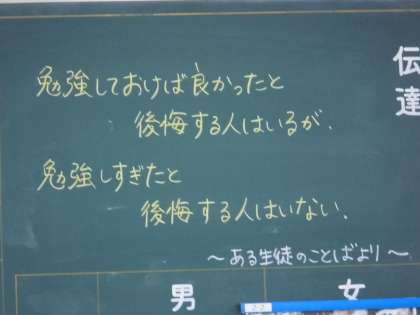 勉強しておけば良かったと
後悔する人はいるが、
勉強しすぎたと
後悔する人はいない。
〜ある生徒のことばより〜
伝達
男 女